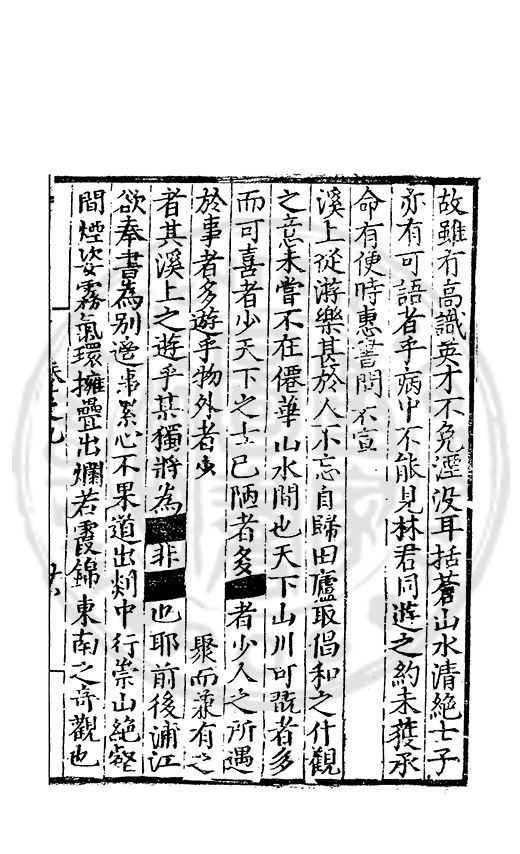 故雖有高識英才不免湮没耳括蒼山水清絶士子
亦有可語者乎病中不能見林君同遊之約未獲承
命有便時惠書問不宣
溪上從游樂甚於人不忘自歸田廬取倡和之什觀
之意未嘗不在僊華山水間也天下山川可翫者多
而可喜者少天下之士已陋者多■者少人之所遇
於事者多遊乎物外者少 聚而兼有之
者其溪上之遊乎某獨將為■非■也耶前後浦江
欲奉書為别邊事累心不果道出剡中行崇山絶壑
間煙姿霧氣環擁疊出爛若霞錦東南之奇觀也